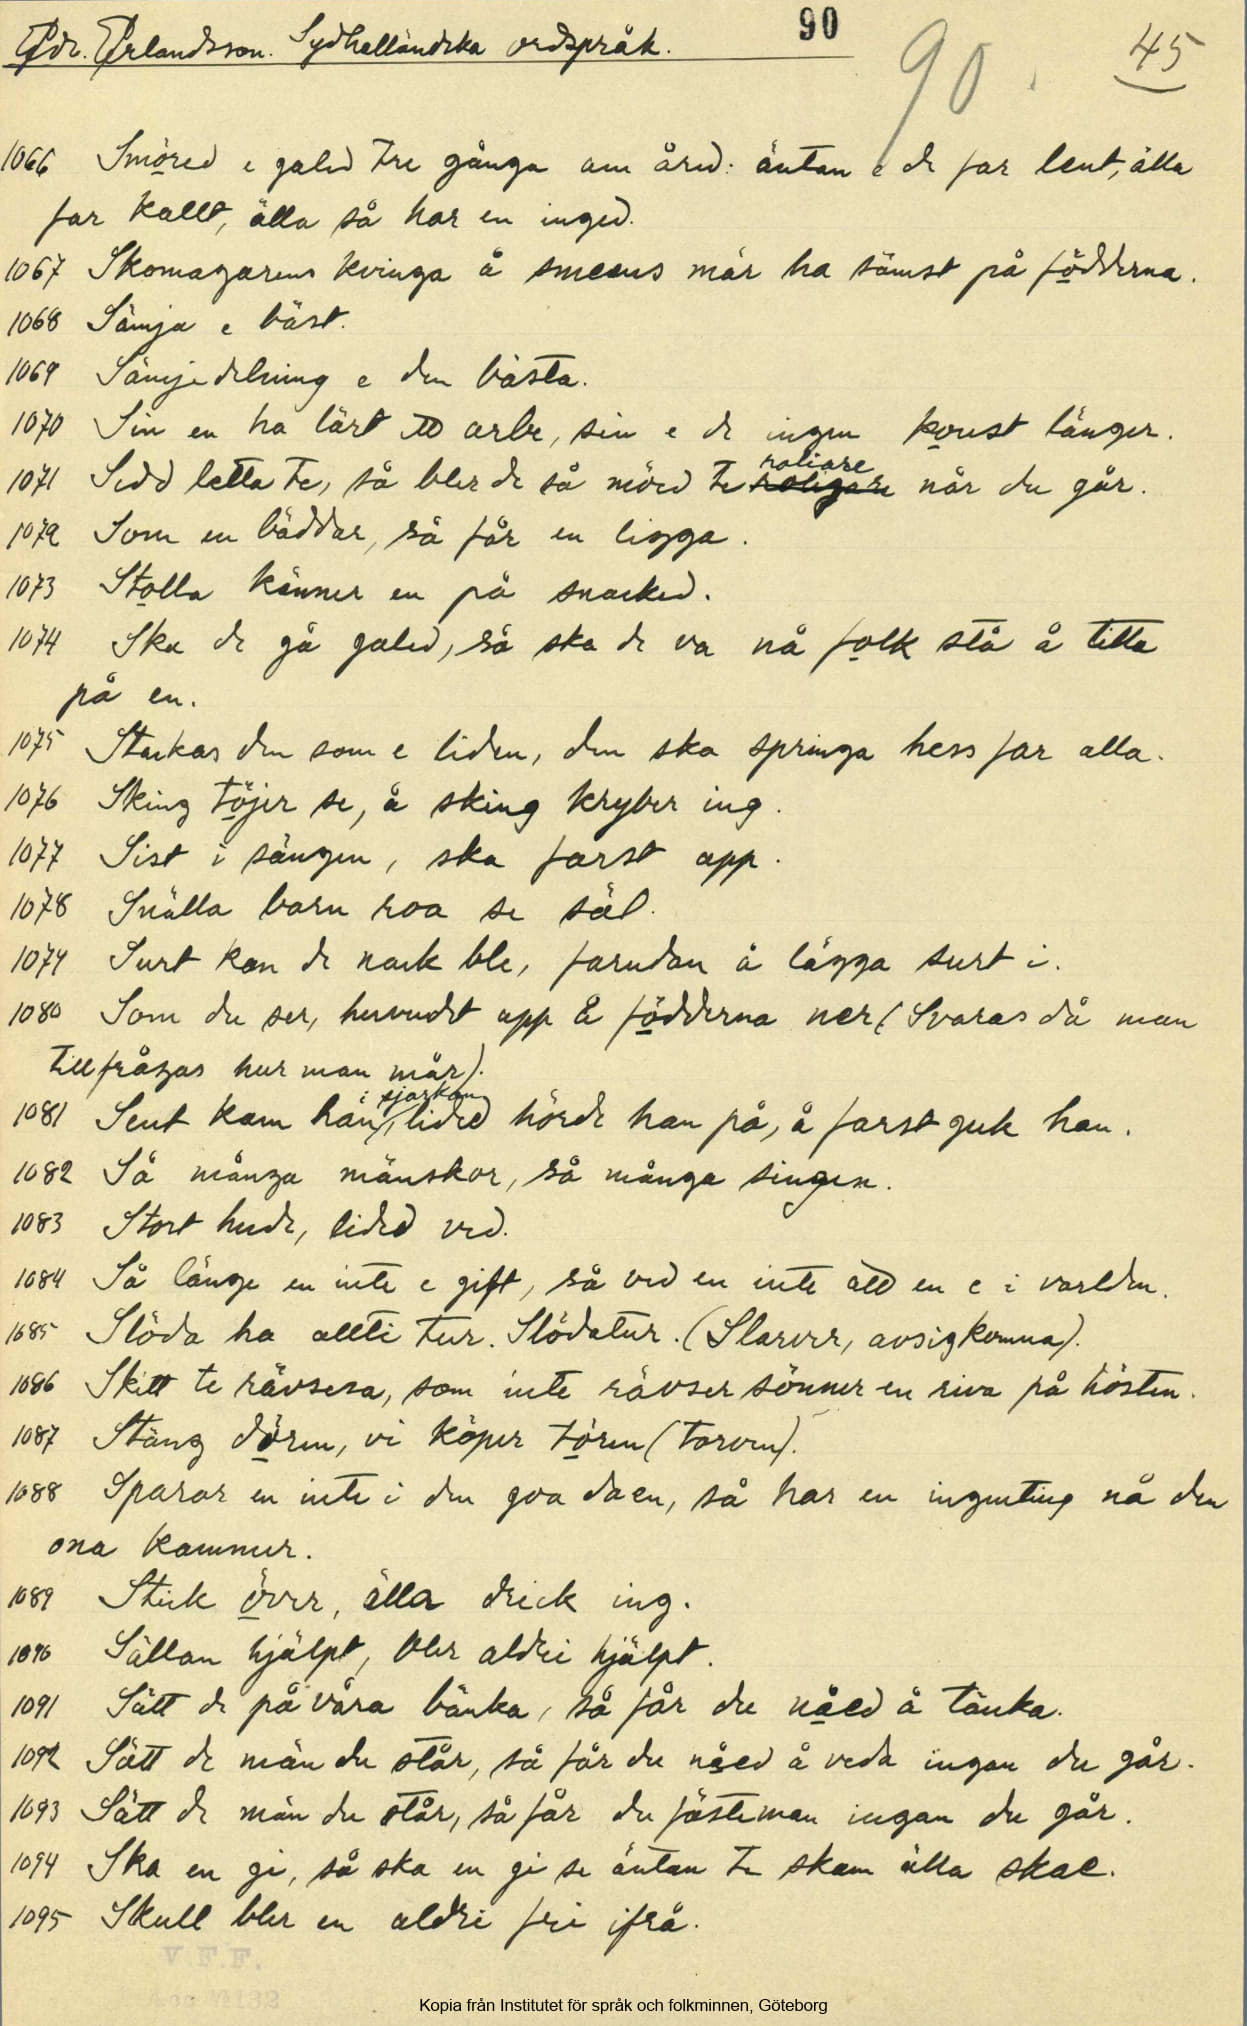 Pdr. Erlandsson. Sydhalländska ordspråk. 90 90. 45
1066 Smöred e galed tre gånga om åred: äntan e de far lent, älla
far kallt, älla så har en inged.
1067 Skomagarens kvinga å smeens mär ha sämst på födderna.
1068 Sämja e bäst.
1069 Sämjedelning e den bästa.
1070 Sin en ha lärt ed arbe, sin e de ingen konst länger.
1071 Sedd letta te, så bler de så möed te roligare roliare når du går.
1072 Som en bäddar, så får en ligga.
1073 Stolla känner en på snacked.
1074 Ska de gå galed, så ska de va nå folk stå å titta
på en.
1075 Stackas den som e liden, den ska springa hess far alla.
1076 Sking töjer se, å sking kryber ing.
1077 Sist i sängen, ska farst app.
1078 Snälla barn roa se säl.
1079 Surt kan de nack ble, farudan å lägga surt i.
1080 Som du ser, huvudet app å födderna ner (Svaras då man
tillfrågas hur man mår).
1081 Sent kam han i sjarkan, lided hörde han på, å farst gick han.
1082 Så många mänskor, så många singen.
1083 Stort hude, lided ved.
1084 Så länge en inte e gift, så ved en inte ad en e i varlden.
1085 Slöda ha allti tur. Slödatur. (Slarver, avsigkomna).
1086 Skitt te rävsera, som inte rävser sönner en riva på hösten.
1087 Stäng dören, vi köper tören (torven).
1088 Sparar en inte i den goa daen, så har en ingenting nå den
ona kammer.
1089 Stick över, älla drick ing.
1090 Sällan hjälpt, bler aldri hjälpt.
1091 Sätt de på våra bänka, så får du nåed å tänka.
1092 Sätt de män du står, så får du nåed å veda ingan du går.
1093 Sätt de män du står, så får du fästeman ingan du går.
1094 Ska en gi, så ska en gi se äntan te skam älla skae.
1095 Skull bler en aldri fri ifrå.
V.F.F.
Kopia från Institutet för språk och folkminnen, Göteborg